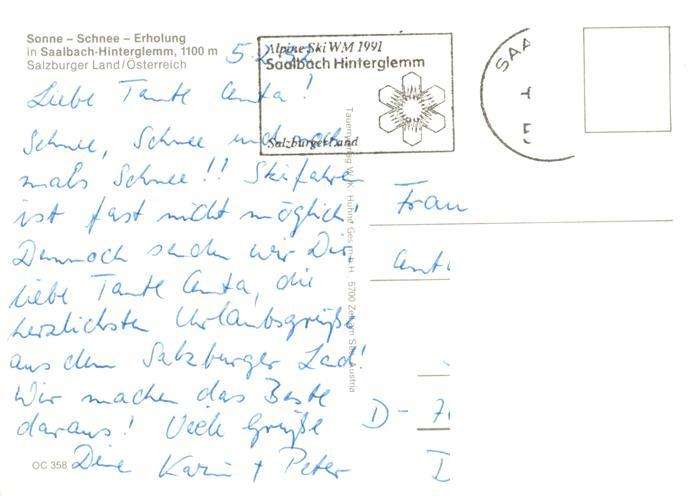 Sonne – Schnee – Erholung
in Saalbach-Hinterglemm, 1100 m
Salzburger Land/Österreich
Alpine Ski WM 1991
Saalbach Hinterglemm
Salzburger Land
SAA
Liebe Tante Anta!
Schnee, Schnee und noch
mals Schnee!! Skifahren
ist fast nicht möglich!
Dennoch senden wir Dir
liebe Tante Anta, die
herzlichsten Urlaubsgrüße
aus dem Salzburger Lad!
Wir machen das Beste
daraus! Viele Grüße
Deine Karin + Peter
OC 358
5700 Zell am See Austria
Frau
Ant
D-